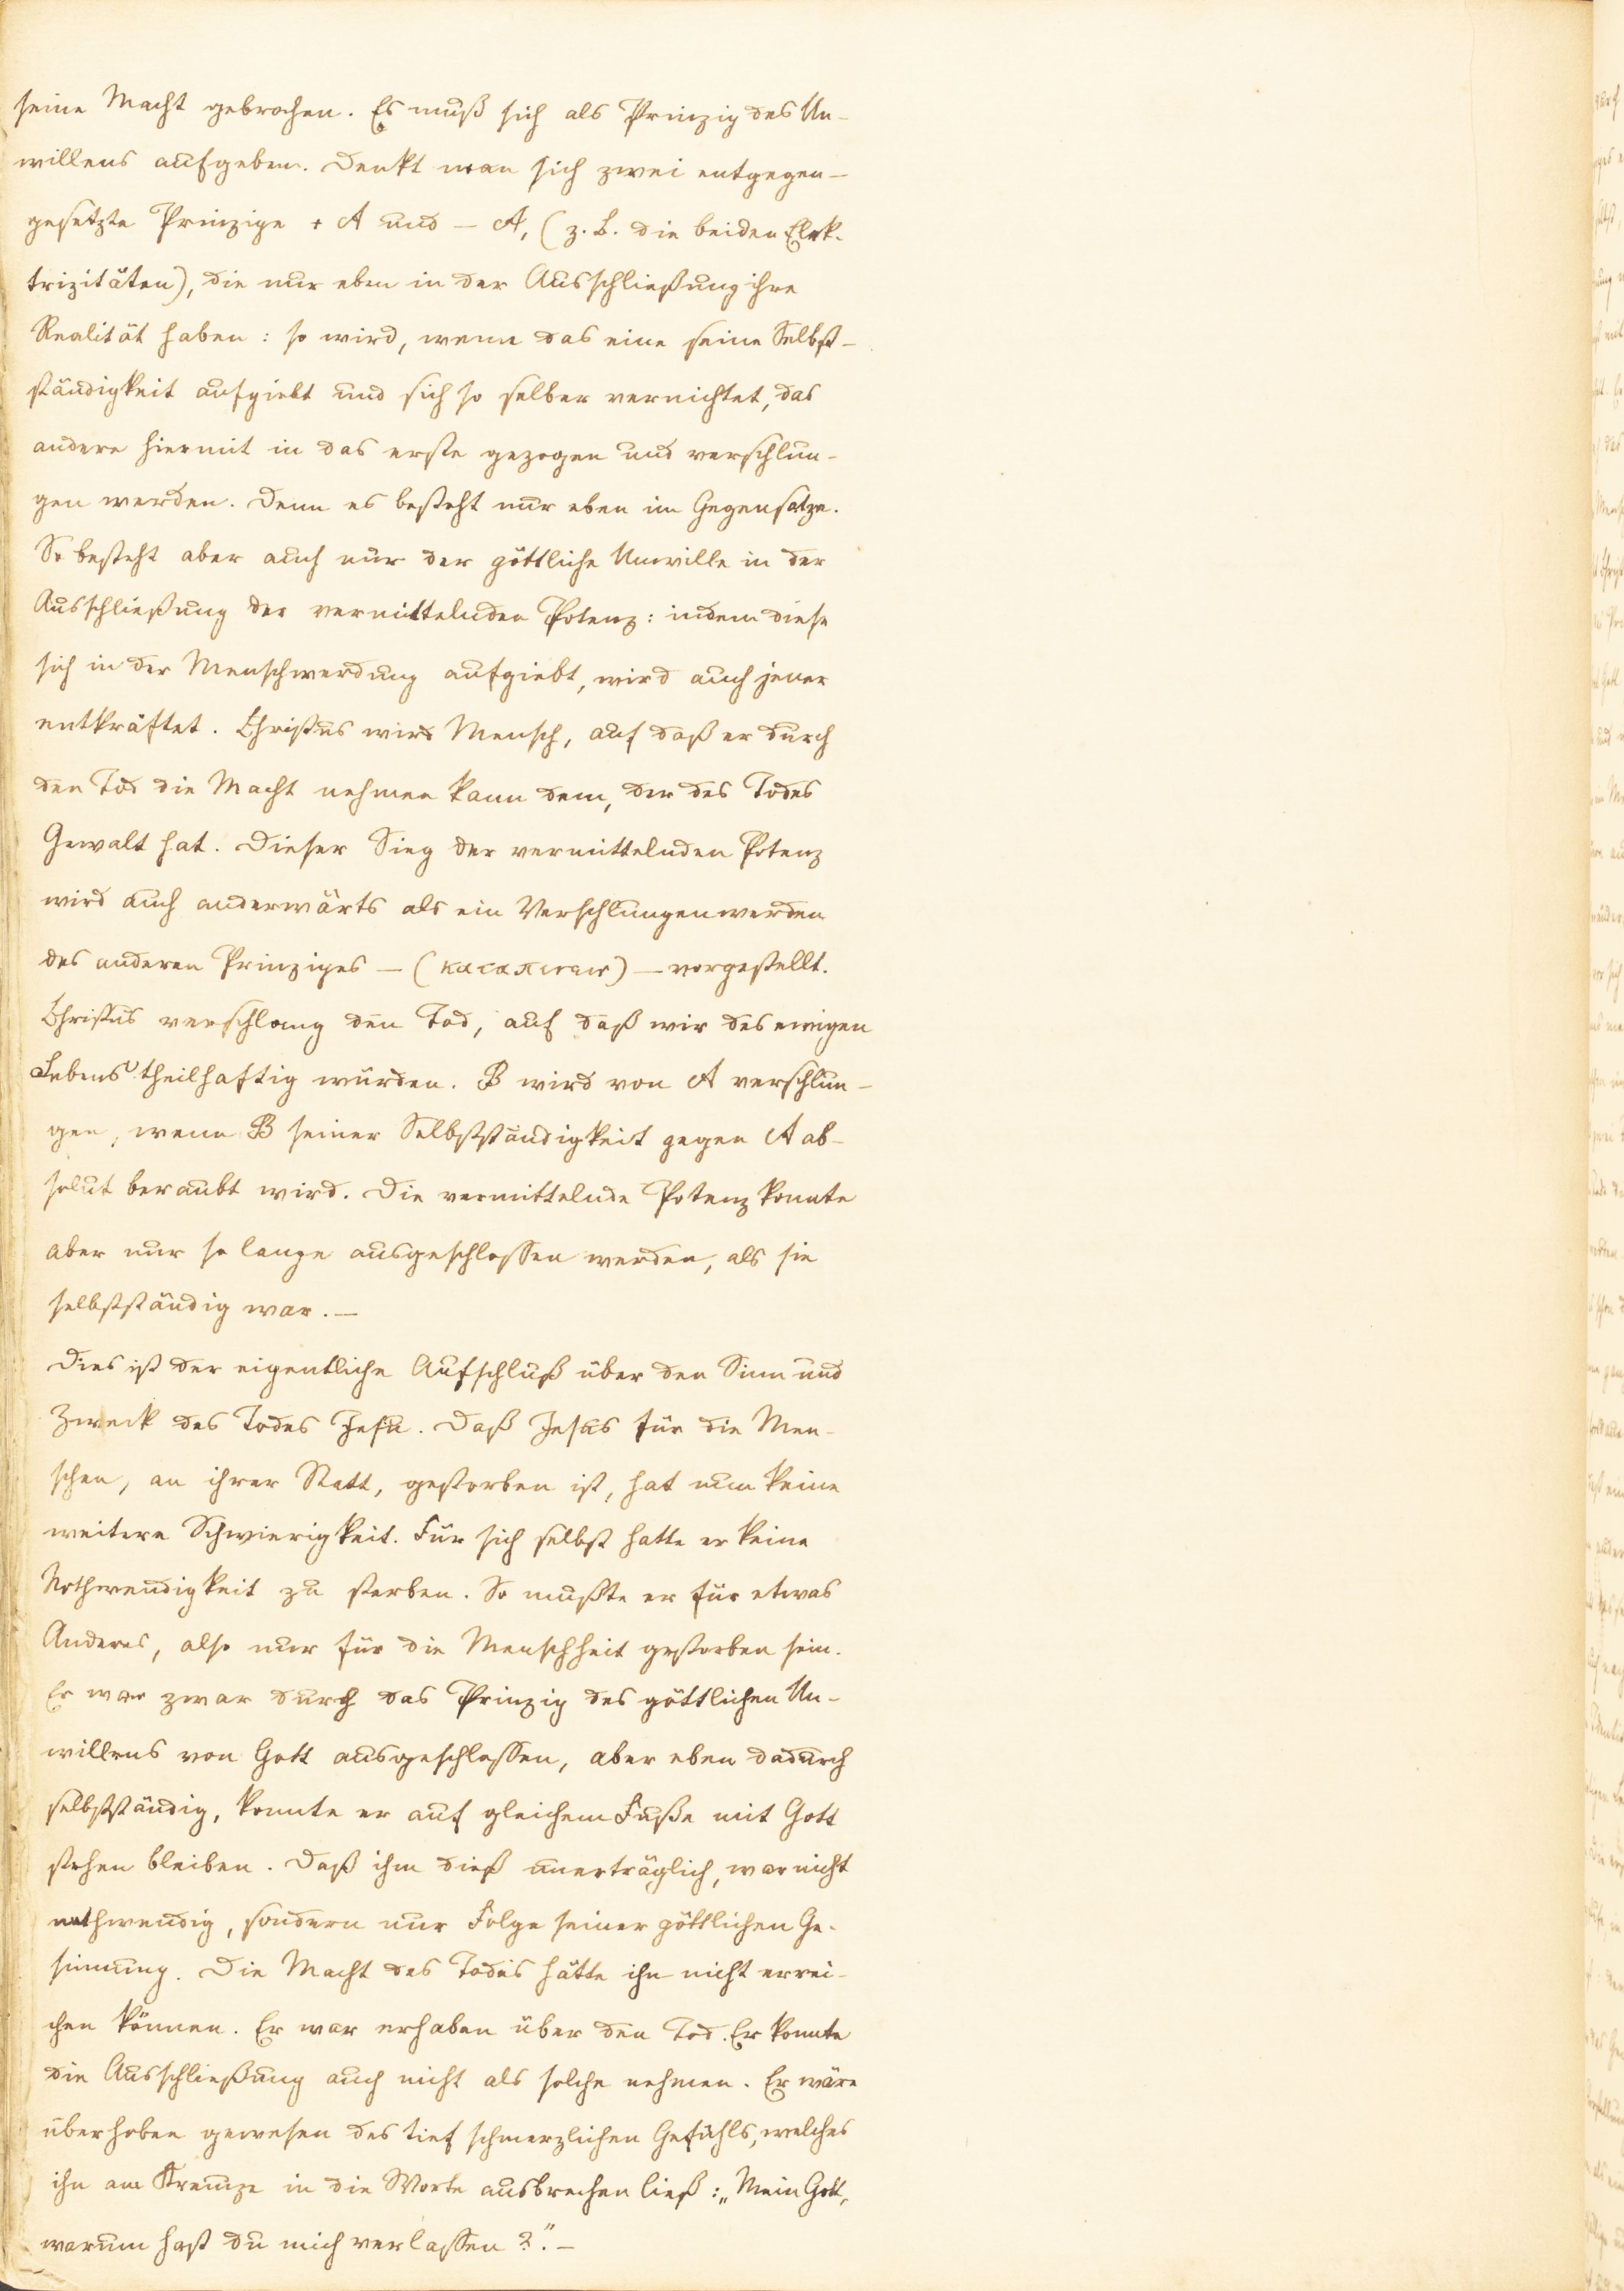 seine Macht gebrochen. Es muß sich als Prinzip des Un-
willens aufgeben. Denkt man sich zwei entgegen-
gesetzte Prinzipe + A und – A, (z. B. die beiden Elek-
trizitäten), die nur eben in der Ausschließung ihre
Realität haben: so wird, wenn das eine seine Selbst-
ständigkeit aufgiebt und sich so selber vernichtet, das
andere hiermit in das erste gezogen und verschlun-
gen werden. Denn es besteht nur eben im Gegensatze.
So besteht aber auch nur der göttliche Unwille in der
Ausschließung der vermittelnden Potenz: indem diese
sich in der Menschwerdung aufgiebt, wird auch jener
entkräftet. Christus wird Mensch, auf daß er durch
den Tod die Macht nehmen kann dem, der des Todes
Gewalt hat. Dieser Sieg der vermittelnden Potenz
wird auch anderwärts als ein Verschlungenwerden
des anderen Prinzipes – ( ) – vorgestellt.
Christus verschlang den Tod, auf daß wir des ewigen
Lebens theilhaftig würden. B wird von A verschlun-
gen, wenn B seiner Selbstständigkeit gegen A ab-
solut beraubt wird. Die vermittelnde Potenz konnte
aber nur so lange ausgeschlossen werden, als sie
selbstständig war. –
Dies ist der eigentliche Aufschluß über den Sinn und
Zweck des Todes Jesu. Daß Jesus für die Men-
schen, an ihrer Statt, gestorben ist, hat nun keine
weitere Schwierigkeit. Für sich selbst hatte er keine
Nothwendigkeit zu sterben. So mußte er für etwas
Anderes, also nur für die Menschheit gestorben sein.
Er war zwar durch das Prinzip des göttlichen Un-
willens von Gott ausgeschlossen, aber eben dadurch
selbstständig, konnte er auf gleichem Fuße mit Gott
stehen bleiben. Daß ihm dieß unerträglich, war nicht
nothwendig, sondern nur Folge seiner göttlichen Ge-
sinnung. Die Macht des Todes hätte ihn nicht errei-
chen können. Er war erhaben über den Tod. Er konnte
die Ausschließung auch nicht als solche nehmen. Er wäre
überhoben gewesen des tief schmerzlichen Gefühls, welches
ihn am Kreuze in die Worte ausbrechen ließ: „Mein Gott,
warum hast du mich verlassen?". –